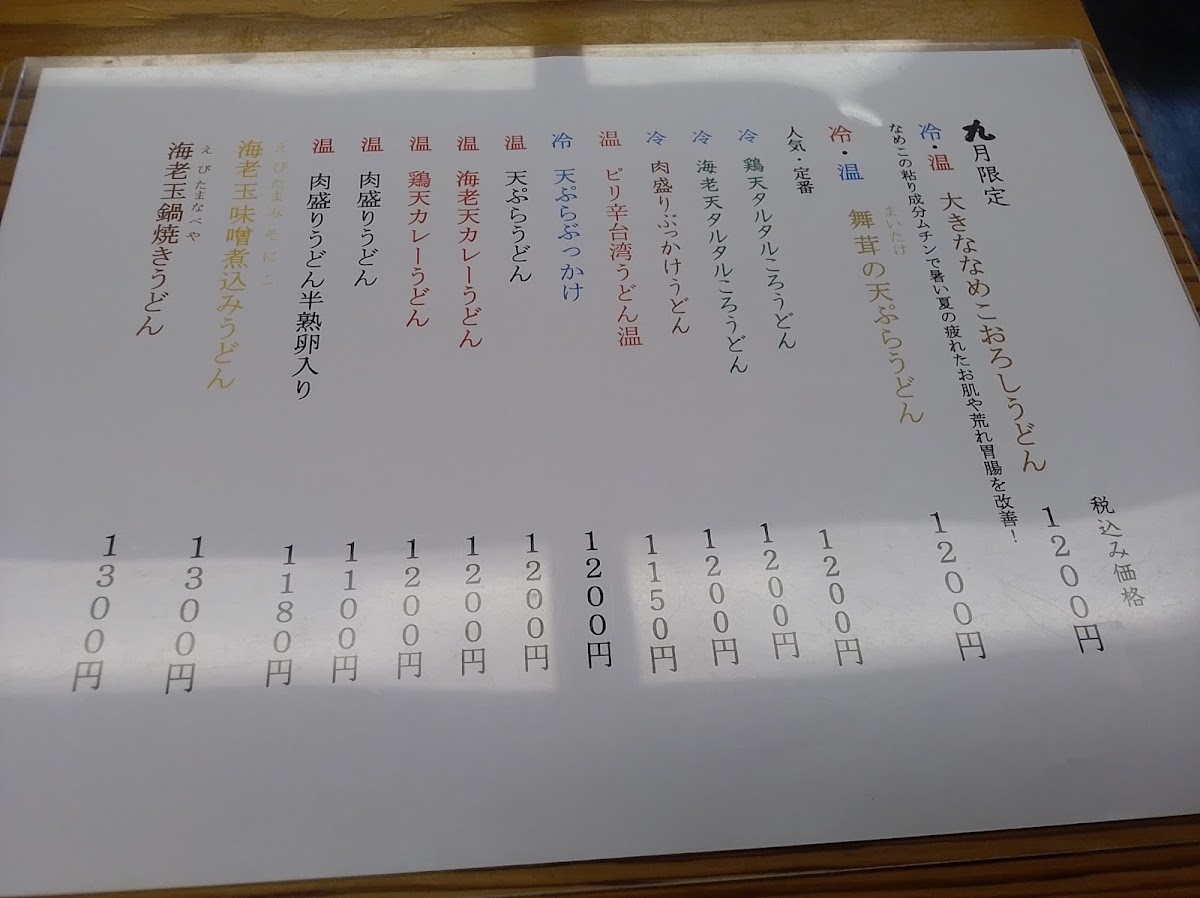 税込み価格
九月限定
冷・温 大きななめこおろしうどん 1200円
なめこの粘り成分ムチンで暑い夏の疲れたお肌や荒れ胃腸を改善！
冷・温 舞茸の天ぷらうどん 1200円
まいたけ
人気・定番
冷 鶏天タルタルころうどん 1200円
冷 海老天タルタルころうどん 1200円
冷 肉盛りぶっかけうどん 1200円
温 ピリ辛台湾うどん温 1150円
冷 天ぷらぶっかけ 1200円
温 天ぷらうどん 1200円
温 海老天カレーうどん 1200円
温 鶏天カレーうどん 1200円
温 肉盛りうどん 1100円
温 肉盛りうどん半熟卵入り 1180円
えびたまみそにこ
海老玉味噌煮込みうどん 1300円
えびたまなべや
海老玉鍋焼きうどん 1300円